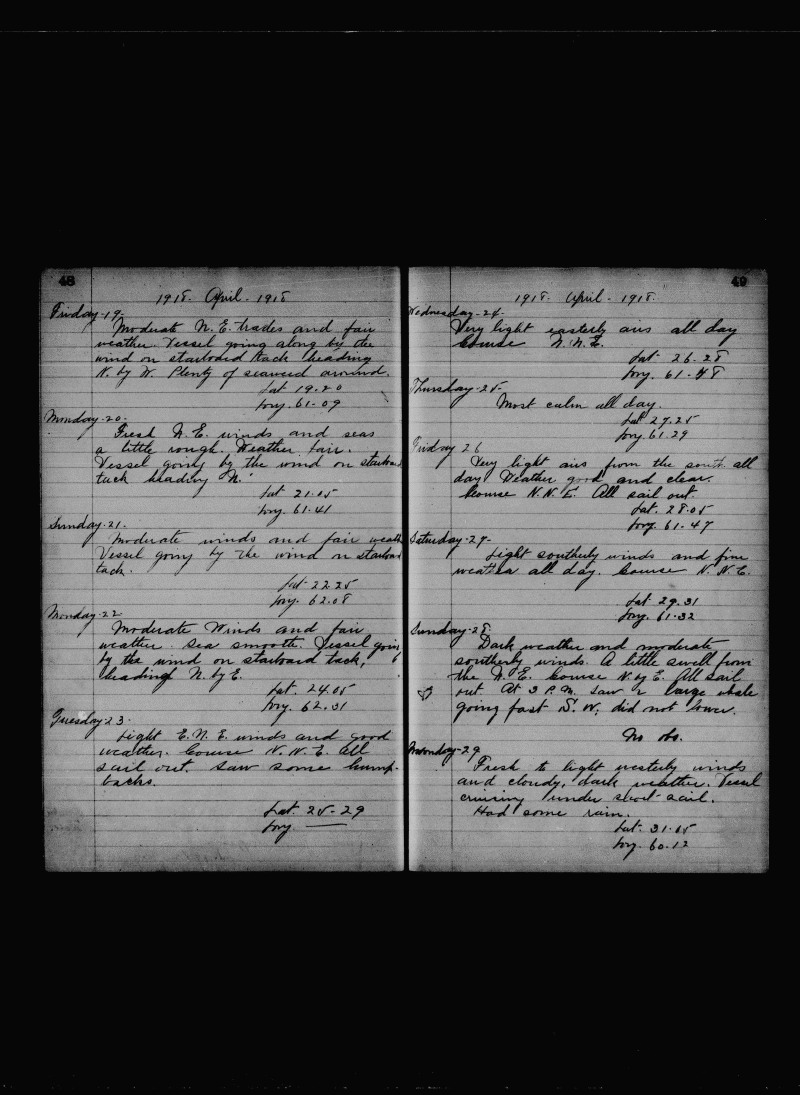 48
1918. April. 1918
Friday-19-
Moderate N.E. trades and fair
weather. Vessel going along by the
wind on starboard tack heading
N. by W. Plenty of seaweed around.
Lat 19-20
Long. 61-09
Monday-20-
Fresh N.E. winds and seas
a little rough. Weather fair.
Vessel going by the wind on starboard
tack heading N.
Lat 21.05
Long. 61.41
Sunday-21.
Moderate winds and fair weath
Vessel going by the wind on starboard
tack.
Lat 22.25
Long. 62.08
Monday-22
Moderate Winds and fair
weather. Sea smooth. Vessel goin
by the wind on starboard tack,
heading N. by E.
Lat. 24.05
Long. 62.31
Tuesday-23-
Light E.N.E. winds and good
weather. Course N.N.E. All
sail out. Saw some hump-
backs.
Lat. 25-29
Long. ——
49
1918. April. 1918.
Wednesday-24.
Very light easterly airs all day
Course N.N.E.
Lat 26.28
Long. 61-48
Thursday-25-
Most calm all day.
Lat 27.25
Long. 61.29
Friday 26
Very light airs from the south all
day Weather good and clear.
Course N.N.E. All sail out.
Lat. 28.05
Long. 61-47
Saturday-27-
Light southerly winds and fine
weather all day. Course N.N.E.
Lat 29.31
Long. 61-32
Sunday-28
Dark weather and moderate
southerly winds. A little swell from
the N.E. Course N by E. All sail
out. At 3 P.M. saw a large whale
going fast S.W. did not lower.
No obs.
Monday-29
Fresh to light westerly winds
and cloudy, dark weather. Vessel
cruising under short sail.
Had some rain.
Lat. 31.15
Long. 60.12